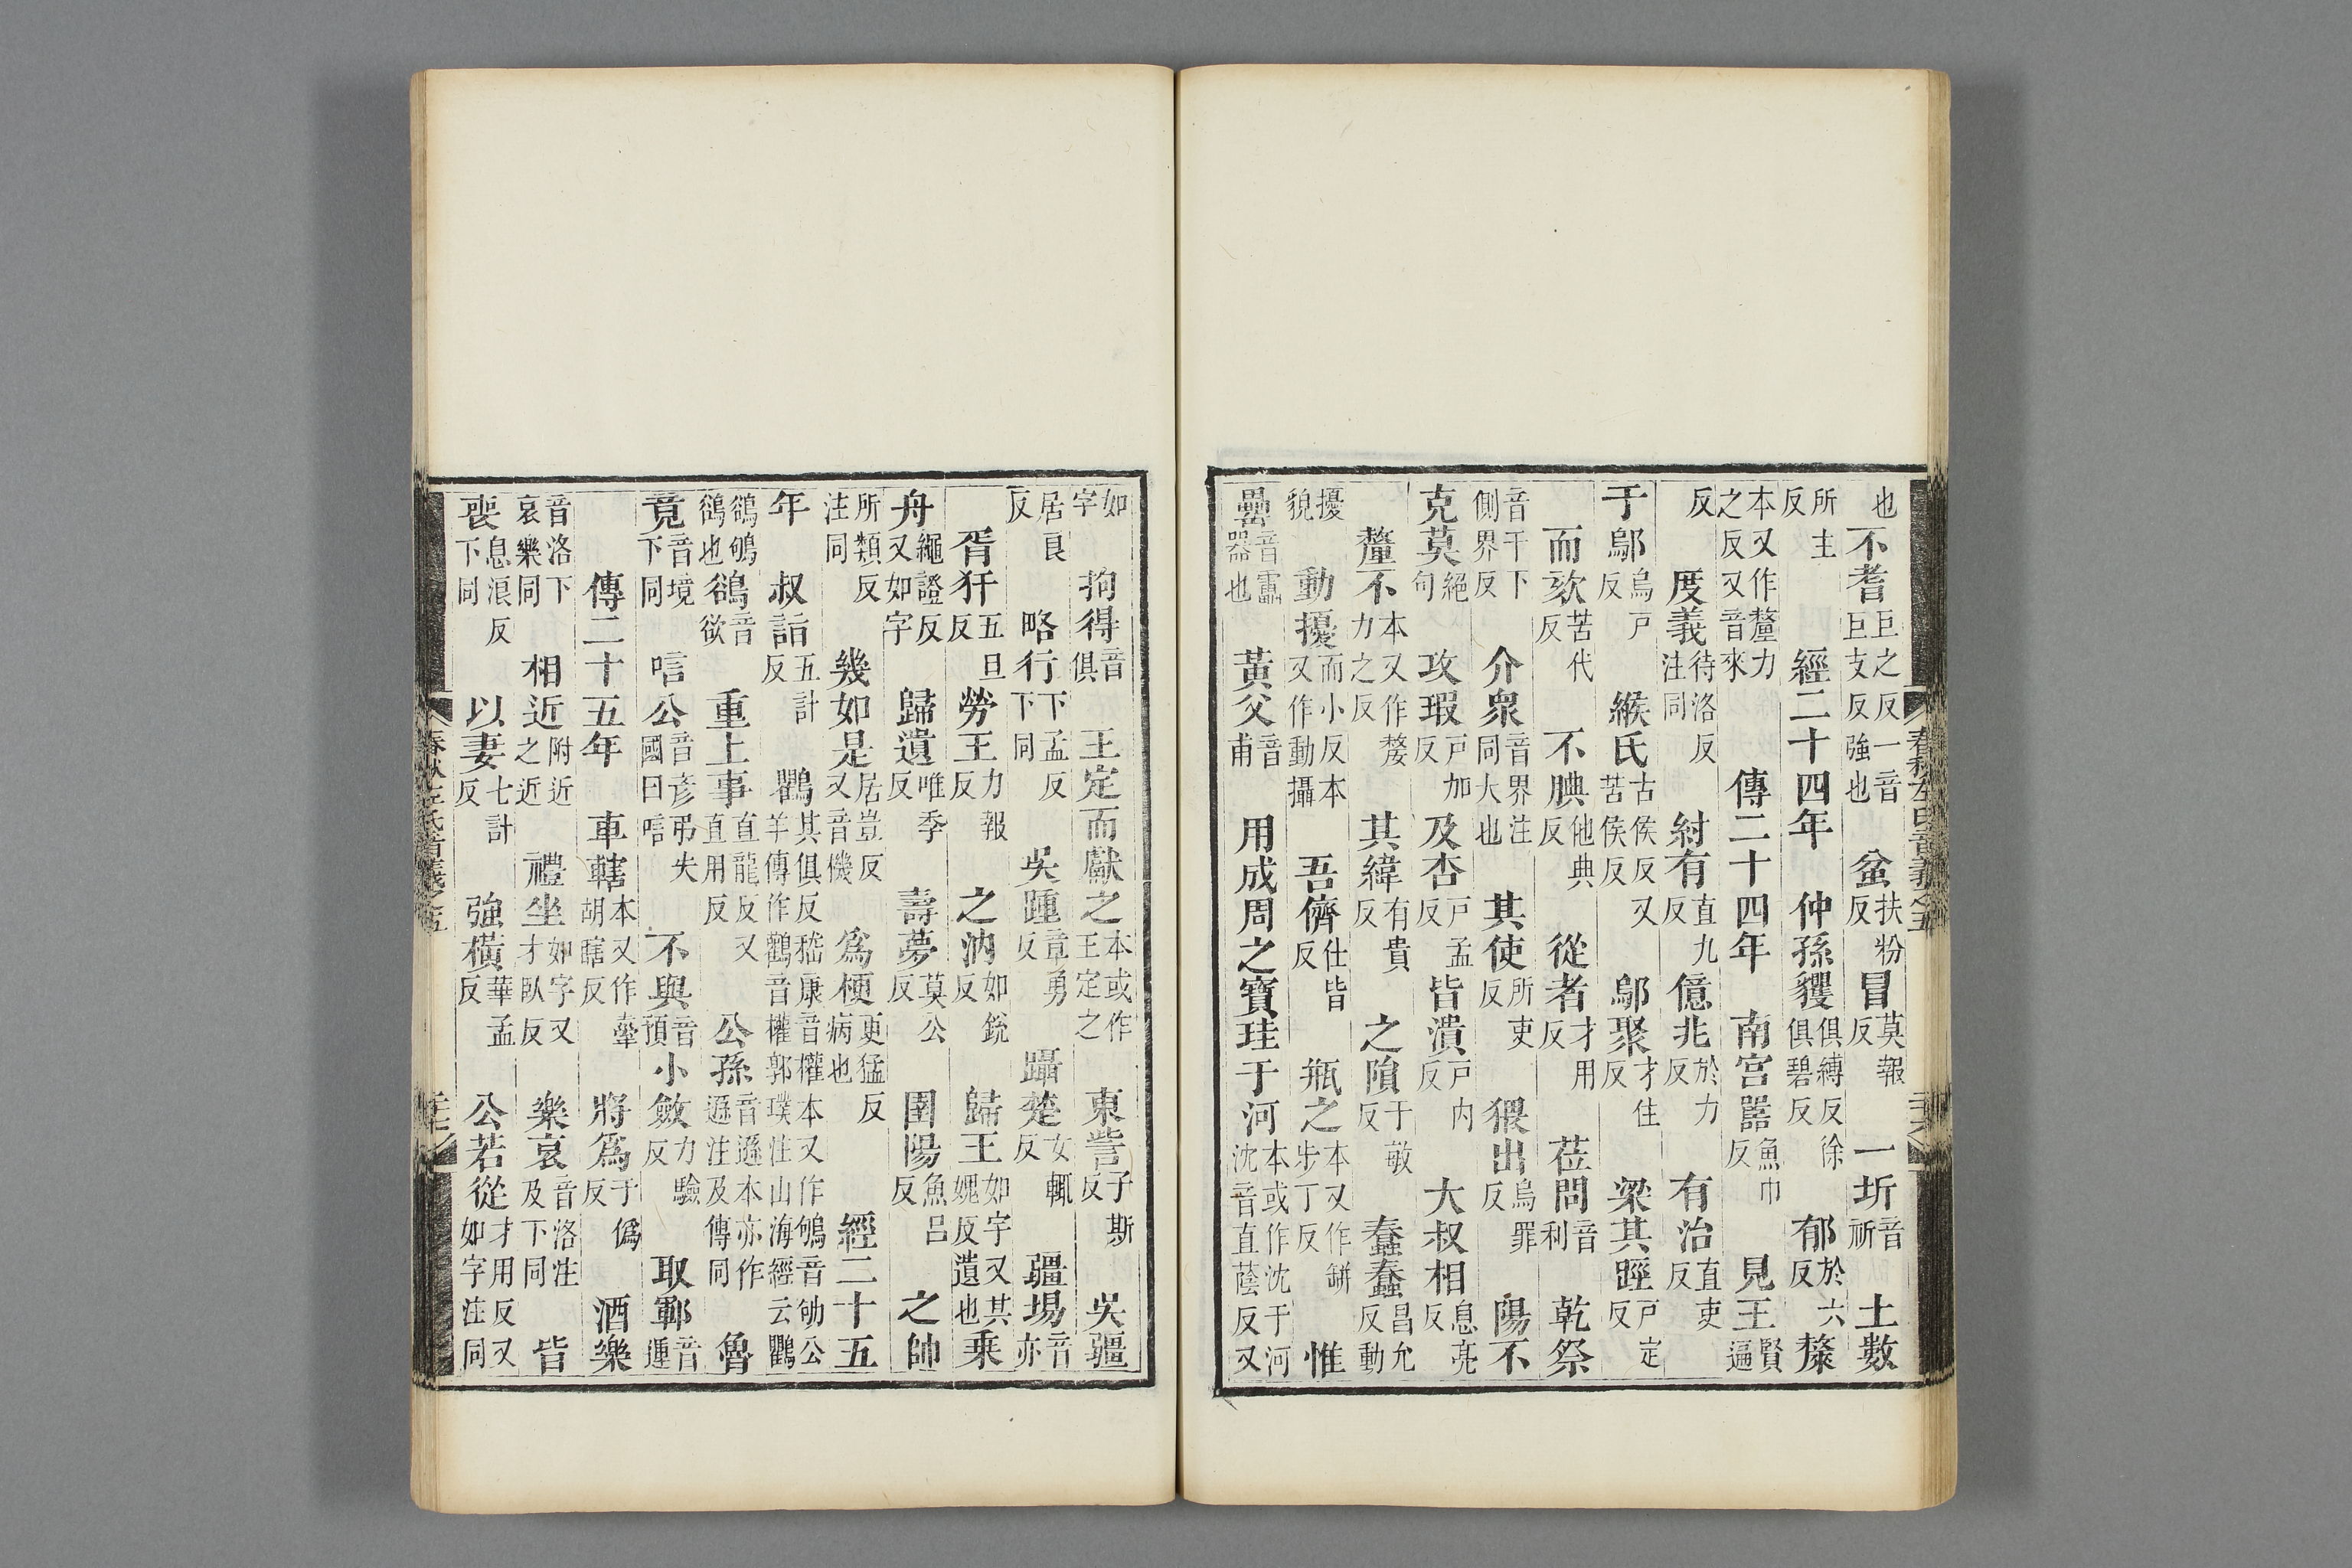 也不耆巨之反一音巨支反強也盆扶粉反冒莫報反一圻音祈土數
所主反經二十四年仲孫貜俱縛反徐俱碧反郁於六反漦
本又作釐力之反又音來傳二十四年南宮嚚魚巾反見王賢遍
反度義待洛反注同紂有直九反億兆於力反有治直吏反
于鄔烏戸反緱氏古侯反又苦侯反鄔聚才住反梁其踁戸定反
而欬苦代反不腆他典反從者才用反莅問音利乾祭
音干下側界反介衆音界注同大也其使所吏反猥出烏罪反陽不
克莫絕句攻瑕戸加反及杏戸孟反皆潰戸內反大叔相息亮反
釐不本又作嫠力之反其緯有貴反之隕于敏反蠢蠢昌允反動
擾貌動擾而小反本又作動攝吾儕仕皆反瓶之本又作缾步丁反惟
罍音雷器也黃父音甫用成周之寶珪于河本或作沈于河沈音直蔭反又
如字拘得音俱王定而獻之本或作王定之東訾子斯反吳疆
居良反略行下孟反下同吳踵章勇反躡楚女輒反疆埸音亦
胥犴五旦反勞王力報反之汭如銳反歸王如字又其媿反遺也乘
舟繩證反又如字歸遺唯季反壽夢莫公反圉陽魚呂反之帥
所類反注同幾如是居豈反又音機爲梗更猛反病也經二十五
年叔詣五計反鸜其俱反嵇康音權本又作鴝音劬公羊傳作鸛音權郭璞注山海經云鸜
鵒鴝鵒也鵒音欲重上事直龍反又直用反公孫音遜本亦作遜注及傳同魯
竟音境下同唁公音彥弔失國曰唁不與音預小斂力驗反取鄆音運
傳二十五年車轄本又作舝胡瞎反將爲于僞反酒樂
音洛下哀樂同相近附近之近禮坐如字又才臥反樂哀音洛注及下同皆
喪息浪反下同以妻七計反強橫華孟反公若從才用反又如字注同